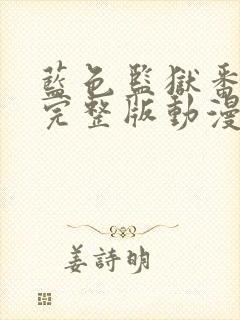 藍色監獄番
完整版動漫
姜詩明